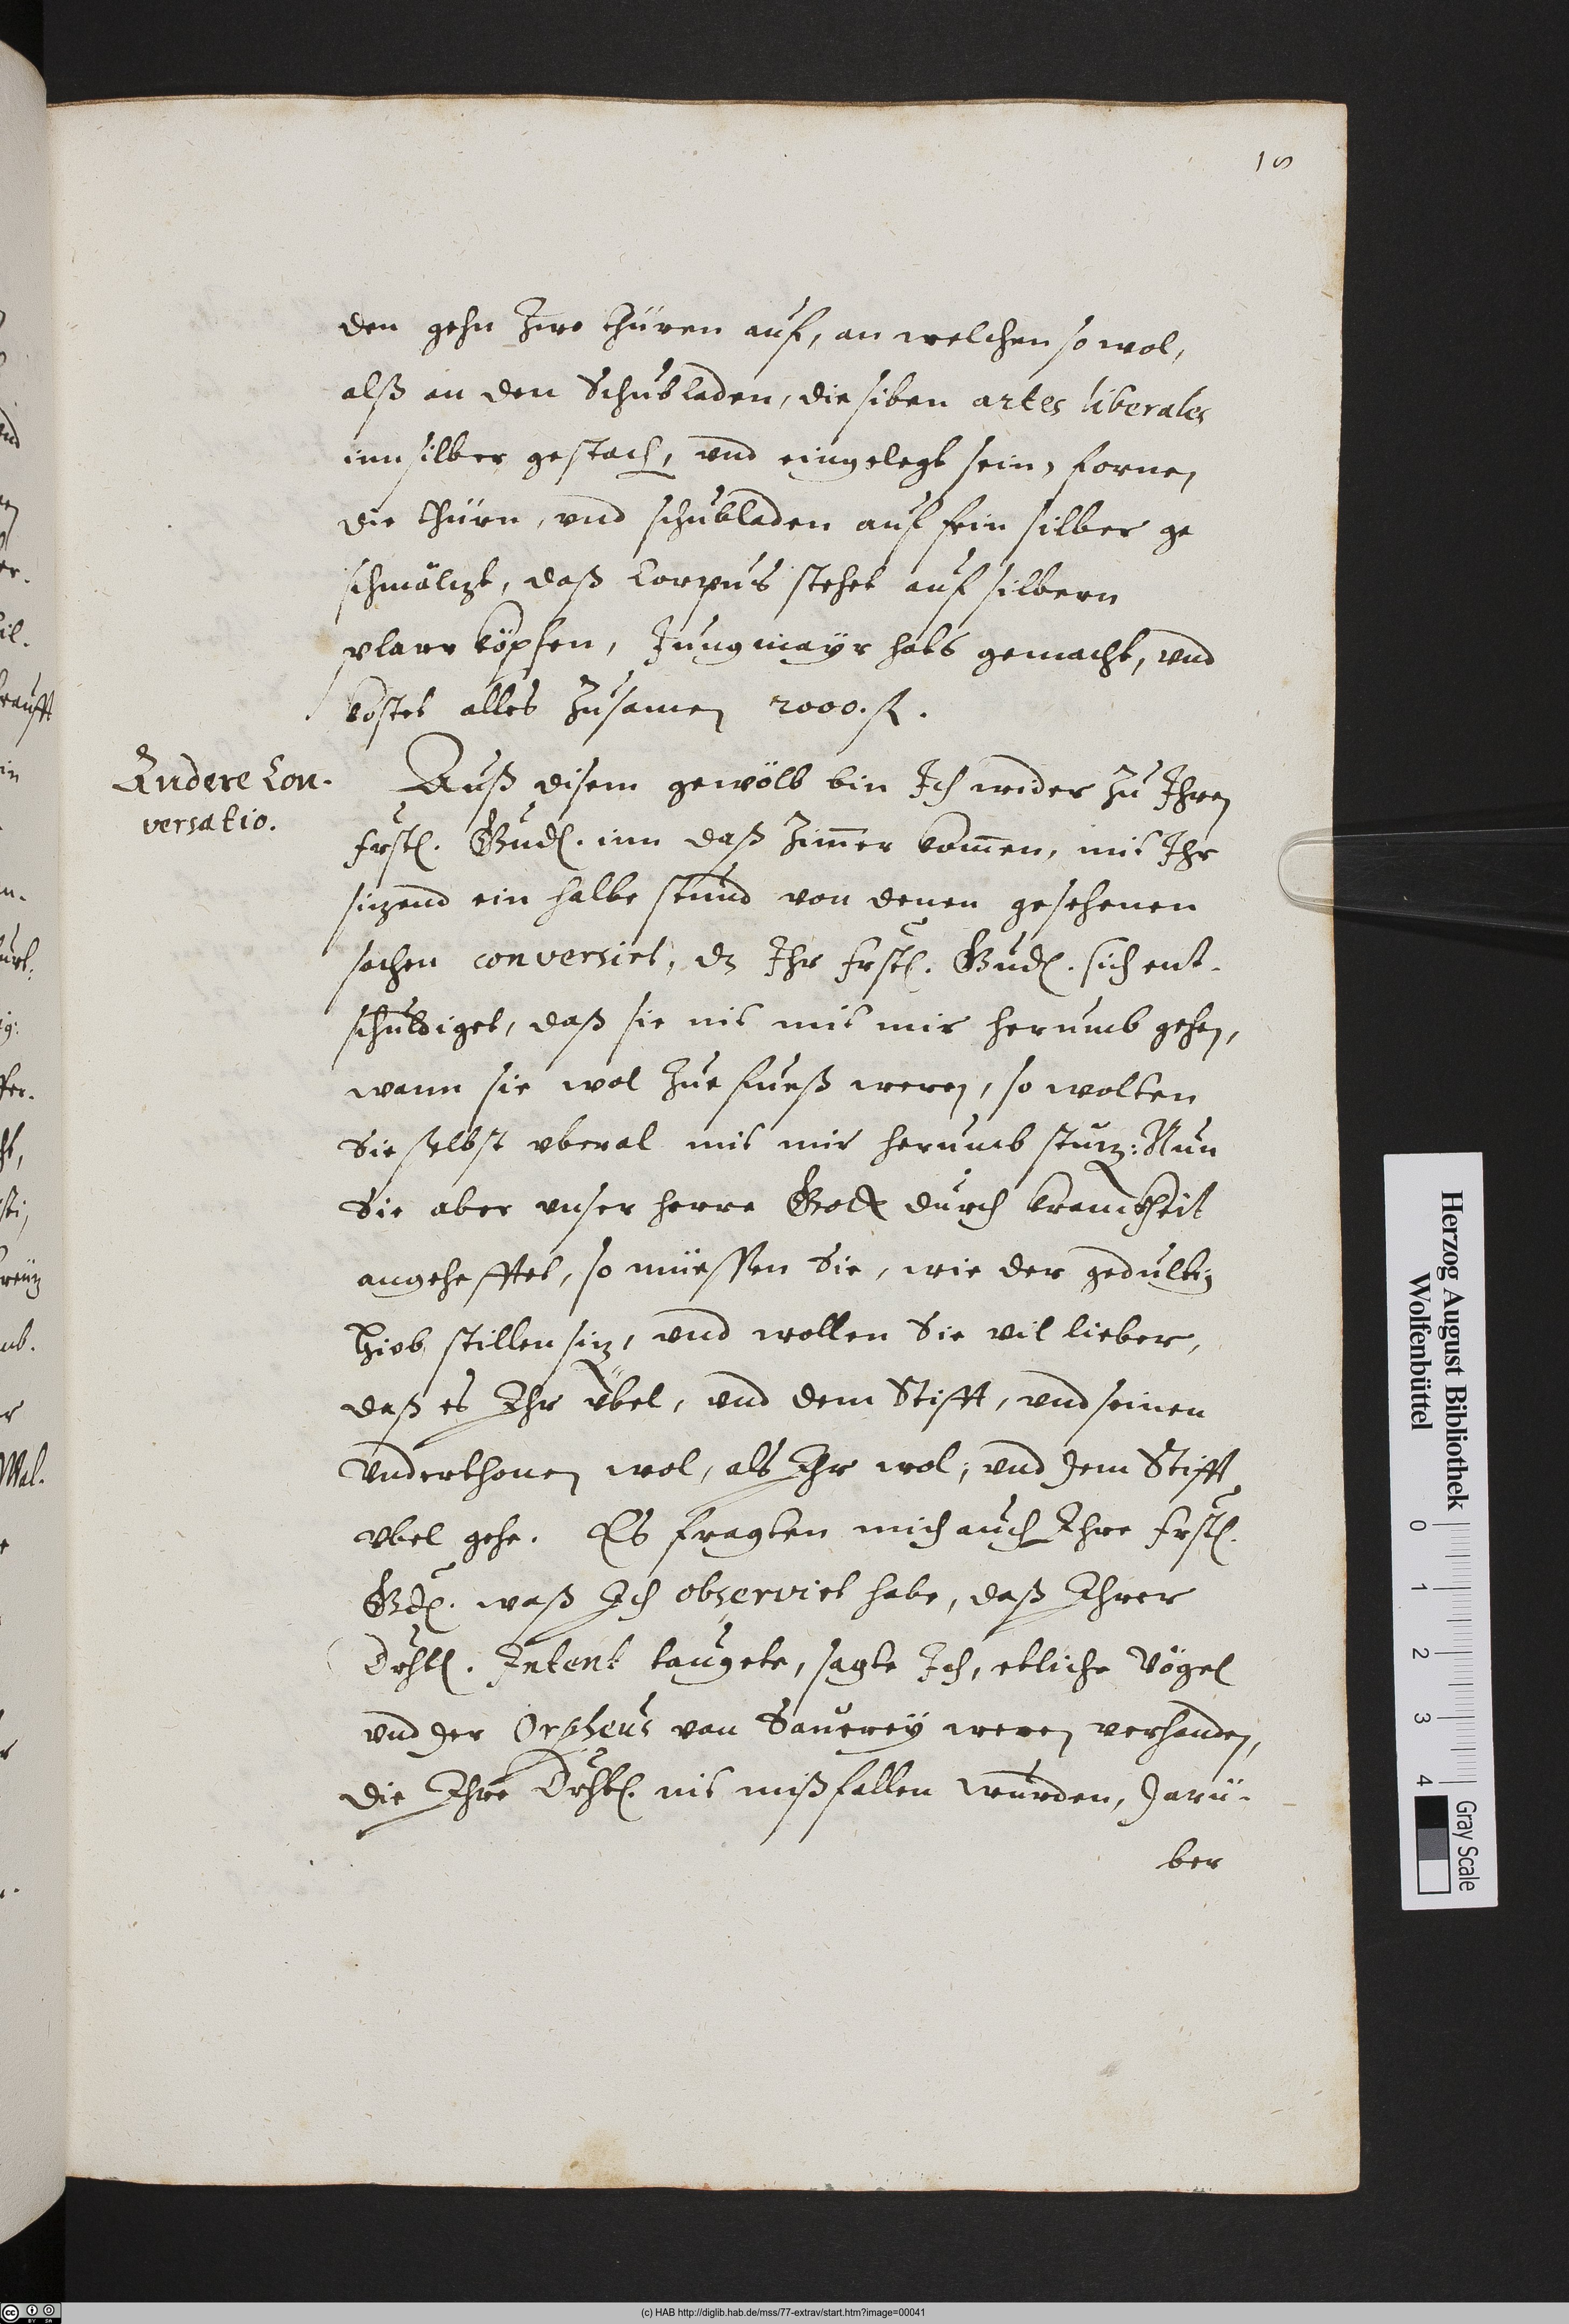 18
den gehn zwo thüren auf, an welchen so wol,
alß an den Schubladen, die siben artes liberales
inn silber gestoch, vnd eingelegt sein, fornen
die thürn, vnd schubladen auf fein silber ge
schmöltzt, daß Corpus stehet auf silbern
köpfen, Jungmayr hats gemacht, vnd
kostet alles zusamen 2000. fl.
Andere Con-
versatio.
Auß disem gewölb bin Ich wider zu Ihren
frstl. Gnd. inn daß Zimmer kommen, mit Ihr
sitzend ein halbe stund von denen gesehenen
sachen conversirt, dz Ihr frstl. Gnd. sich ent-
schuldiget, daß sie nit mit mir herumb gehen,
wann sie wol zue fueß weren, so wolten
Sie selbst vberal mit mir herumb stutz: Nun
Sie aber vnser herre Gott durch kranckheit
angehefftet, so müessen Sie, wie der gedultig
Hiob stillen sitz, vnd wollen Sie vil lieber,
daß es Ihr übel, vnd dem Stifft, vnd seinen
Vnderthonen wol, als Ihr wol, vnd dem Stifft
vbel gehe. Es fragten mich auch Ihre frstl.
Gd. waß Ich observirt habe, daß Ihrer
Drhtl. Intent taugete, sagte Ich, etliche Vögel
vnd der Orpheus von Sauerey weren verhanden,
die Ihre Drhtl. nit mißfallen wurden, darü-
ber
Herzog August Bibliothek
Wolfenbüttel
0 1 2 3 4
Gray Scale
(c) HAB http://diglib.hab.de/mss/77-extrav/start.htm?image=00041